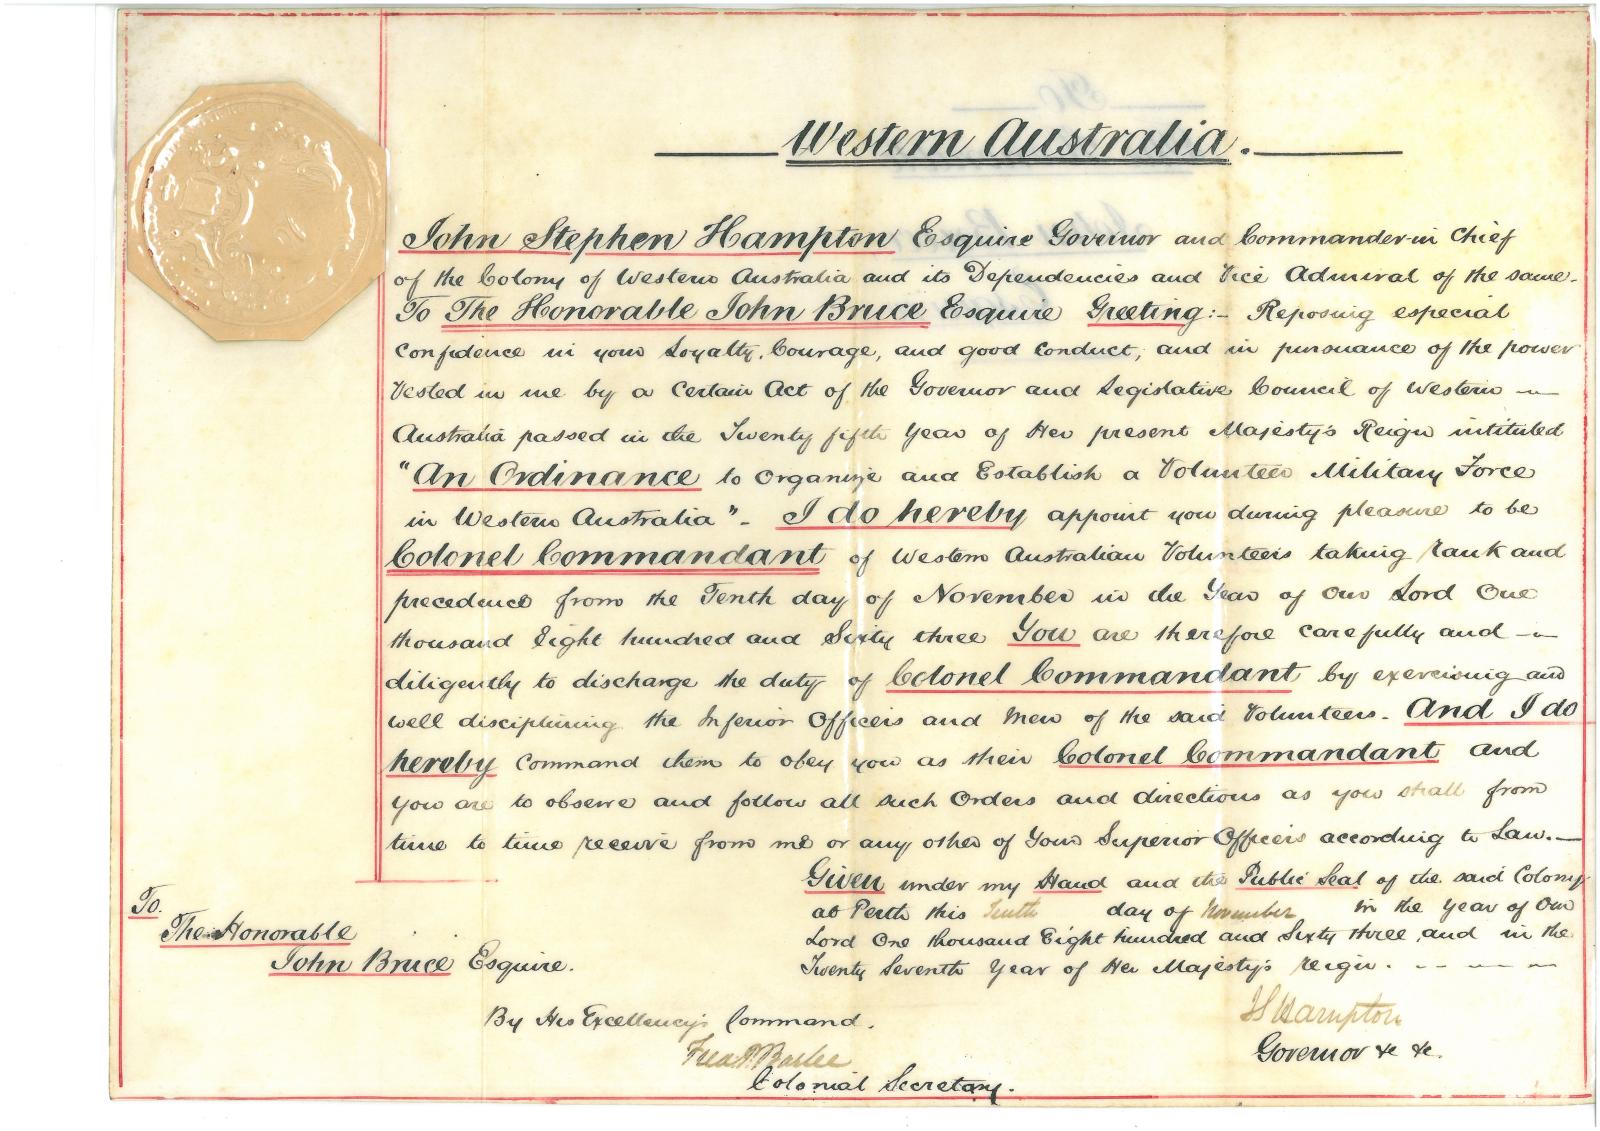 Western Australia.
John Stephen Hampton Esquire Governor and Commander-in Chief
of the Colony of Western Australia and its Dependencies and Vice Admiral of the same.
To The Honorable John Bruce Esquire Greeting:- Reposing especial
Confidence in your Loyalty, Courage, and good Conduct, and in pursuance of the power
Vested in me by a Certain Act of the Governor and Legislative Council of Western
Australia passed in the Twenty fifth Year of Her present Majesty's Reign intituled
"An Ordinance to Organize and Establish a Volunteer Military Force
in Western Australia". I do hereby appoint you during pleasure to be
Colonel Commandant of Western Australian Volunteers taking rank and
precedence from the Tenth day of November in the Year of Our Lord One
thousand Eight hundred and Sixty three You are therefore carefully and
diligently to discharge the duty of Colonel Commandant by exercising and
well disciplining the Inferior Officers and Men of the said Volunteers. And I do
hereby Command them to obey you as their Colonel Commandant and
You are to observe and follow all such Orders and directions as you shall from
time to time receive from me or any other of Your Superior Officers according to Law.
Given under my Hand and the Public Seal of the said Colony
at Perth this Tenth day of November in the Year of Our
Lord One thousand Eight hundred and Sixty three, and in the
Twenty Seventh Year of Her Majesty's reign.
To.
The Honorable
John Bruce Esquire.
By His Excellency's Command.
Fred P Barlee
Colonial Secretary.
JS Hampton
Governor &c &c.